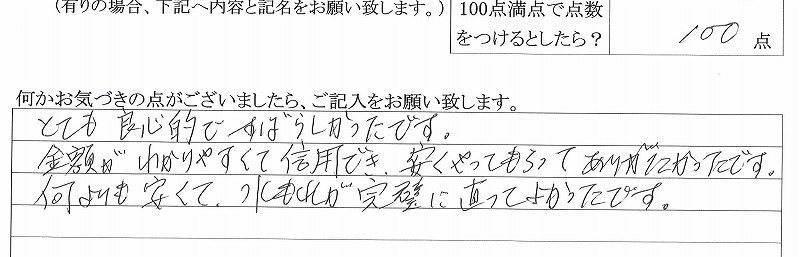 (有りの場合、下記へ内容と記名をお願い致します。)
100点満点で点数
をつけるとしたら?
100 点
何かお気づきの点がございましたら、ご記入をお願い致します。
とても 良心的で すばらしかったです。
金額が わかりやすくて 信用でき、安くやってもらって ありがたかったです。
何よりも 安くて、水もれが 完璧に 直ってよかったです。